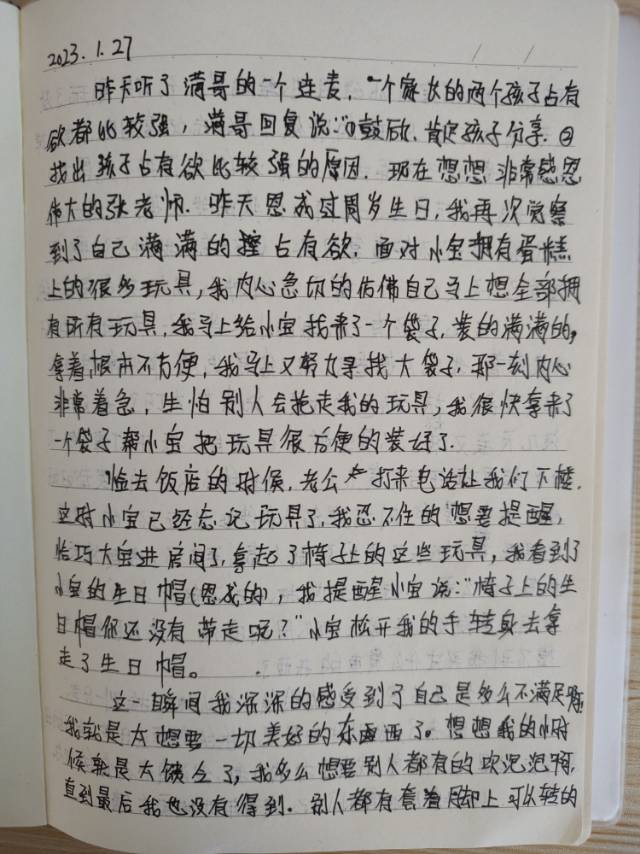 2023.1.27
昨天听了满哥的一个连麦,一个家长的两个孩子占有
欲都比较强,满哥回复说:①鼓励、肯定孩子分享.②
找出孩子占有欲比较强的原因.现在想想非常感恩
伟大的张老师.昨天恩成过周岁生日,我再次觉察
到了自己满满的控占有欲.面对小宝拥有蛋糕
上的很多玩具,我内心急切的仿佛自己马上想全部拥
有所有玩具,我马上给小宝找来了一个袋子,装的满满的,
拿着根本不方便,我马上又努力寻找大袋子.那一刻内心
非常着急,生怕别人会抢走我的玩具,我很快拿来了
一个袋子帮小宝把玩具很方便的装好了.
临去饭店的时候,老公打来电话让我们下楼,
这时小宝已经忘记玩具了,我忍不住的想要提醒,
恰巧大宝进房间了,拿起了椅子上的这些玩具,我看到了
小宝的生日帽(恩成的),我提醒小宝说:"椅子上的生
日帽你还没有带走呢?"小宝松开我的手转身去拿
走了生日帽。
这一瞬间我深深的感受到了自己是多么不满足啊,
我就是太想要一切美好的东西了。想想我的小时
候就是太馈乏了,我多么想要别人都有的吹泡泡瓶,
直到最后我也没有得到.别人都有套着脚上可以转的